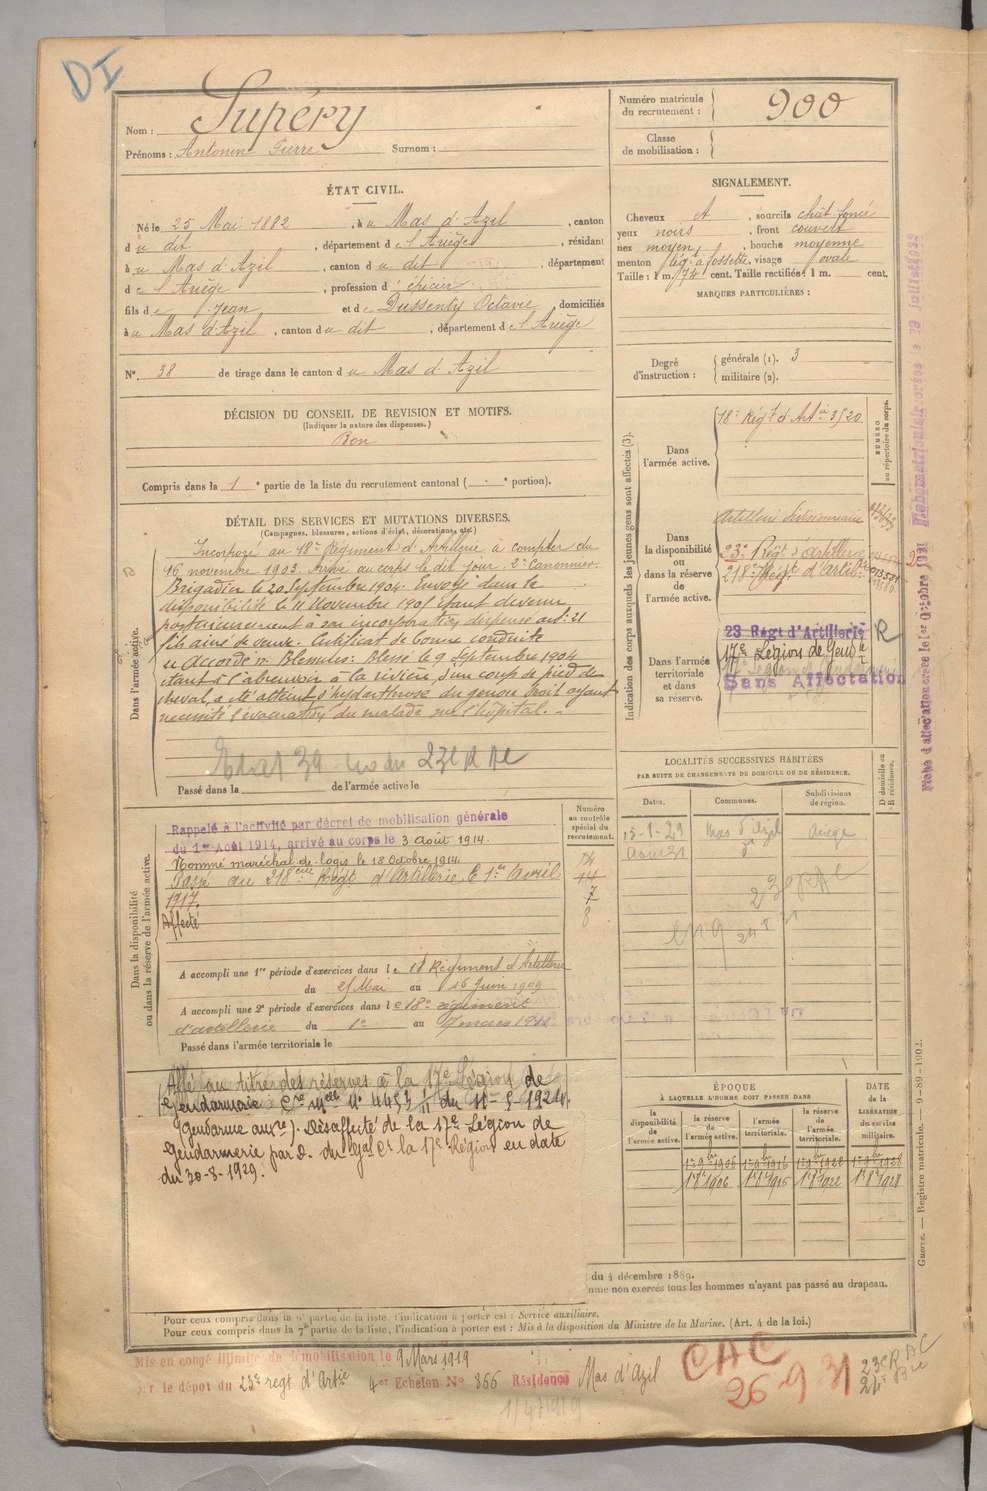 DI
Nom : Supéry
Prénoms : Antonin Pierre Surnom :
Numéro matricule du recrutement : 900
Classe de mobilisation :
ÉTAT CIVIL.
Né le 25 Mai 1882, à u Mas d'Azil, canton
d u dit, département d e l'Ariège, résidant
à u Mas d'Azil, canton d u dit, département
d e l'Ariège, profession d' épicier
fils d e Jean et d e Dussenty Octavie, domiciliés
à u Mas d'Azil, canton d u dit, département d e l'Ariège
N° 38 de tirage dans le canton d u Mas d'Azil
SIGNALEMENT.
Cheveux , sourcils chât foncé
yeux noirs, front couvert
nez moyen, bouche moyenne
menton à fossette, visage ovale
Taille : 1 m. 74 cent. Taille rectifiée : 1 m. cent.
MARQUES PARTICULIÈRES :
Degré d'instruction : générale (1). 3
militaire (2).
DÉCISION DU CONSEIL DE REVISION ET MOTIFS.
(Indiquer la nature des dispenses.)
Bon
Compris dans la 1e partie de la liste du recrutement cantonal ( e portion).
DÉTAIL DES SERVICES ET MUTATIONS DIVERSES.
(Campagnes, blessures, actions d'éclat, décorations, etc.)
Dans l'armée active.
Incorporé au 18e Régiment d'Artillerie à compter du
16 novembre 1903. Arrivé au corps le dit jour. 2e Canonnier.
Brigadier le 20 Septembre 1904. Envoyé dans la
disponibilité le 11 Novembre 1905 étant devenu
postérieurement à son incorporation dispensé art: 21
fils aîné de veuve. Certificat de bonne conduite
accordé. Blessures: Blessé le 9 Septembre 1904
étant à l'abreuvoir à la rivière, d'un coup de pied de
cheval, a été atteint d'hydarthrose du genou droit ayant
nécessité l'évacuation du malade sur l'hôpital.
Passé dans la de l'armée active le
Indication des corps auxquels les jeunes gens sont affectés (3).
NUMÉRO au répertoire du corps.
Dans l'armée active. 18e Régt d'Artie 3/20
Dans la disponibilité ou dans la réserve de l'armée active.
Artillerie divisionnaire
23e Régt d'Artillerie
218e Régt d'Artie
Dans l'armée territoriale et dans sa réserve.
23 Régt d'Artillerie R
17e Légion de Gend
Sans Affectation
Fiche d'affectation créée le 1er Octobre 1921
Dans la disponibilité ou dans la réserve de l'armée active.
Numéro au contrôle spécial du recrutement.
Rappelé à l'activité par décret de mobilisation générale
du 1er Août 1914, arrivé au corps le 3 août 1914.
Nommé maréchal-de-logis le 18 Octobre 1914.
Passé au 218ème Régt d'Artillerie le 1er Avril
1917.
Affecté
14
7
8
A accompli une 1re période d'exercices dans l e 18 Régiment d'Artillerie
du Mai au 16 Juin 1909
A accompli une 2e période d'exercices dans l e 18e régiment
d'artillerie du 1er au 17 mars 1911
Passé dans l'armée territoriale le
LOCALITÉS SUCCESSIVES HABITÉES
PAR SUITE DE CHANGEMENTS DE DOMICILE OU DE RÉSIDENCE.
Dates. Communes. Subdivisions de région. D domicile ou R résidence.
15-1-29 Mas d'Azil Ariège
Août 31 d°
Affé au titre des réserves à la 17e Légion de
Gendarmerie Cre Melle N° 4453 du 11-5-1924.
(gendarme auxre). Désaffecté de la 17e Légion de
Gendarmerie par D. du Gal Ct la 17e Région en date
du 30-8-1929.
ÉPOQUE
À LAQUELLE L'HOMME DOIT PASSER DANS
la disponibilité de l'armée active.
la réserve de l'armée active.
l'armée territoriale.
la réserve de l'armée territoriale.
DATE de la LIBÉRATION du service militaire.
1er 9bre 1906 1er 9bre 1916 1er 9bre 1928
1er 8bre 1906 1er 8bre 1922 1er 8bre 1928
du 4 décembre 1889.
mme non exercés tous les hommes n'ayant pas passé au drapeau.
Pour ceux compris dans la 6e partie de la liste, l'indication à porter est : Service auxiliaire.
Pour ceux compris dans la 7e partie de la liste, l'indication à porter est : Mis à la disposition du Ministre de la Marine. (Art. 4 de la loi.)
Guerre. — Registre matricule. — 9-89-1902.
Mis en congé illimité de démobilisation le 9 Mars 1919
par le dépôt du 23e regt d'Artie 4er Echelon N° 366 Résidence Mas d'Azil
CAC
26 9 31
23e RAC